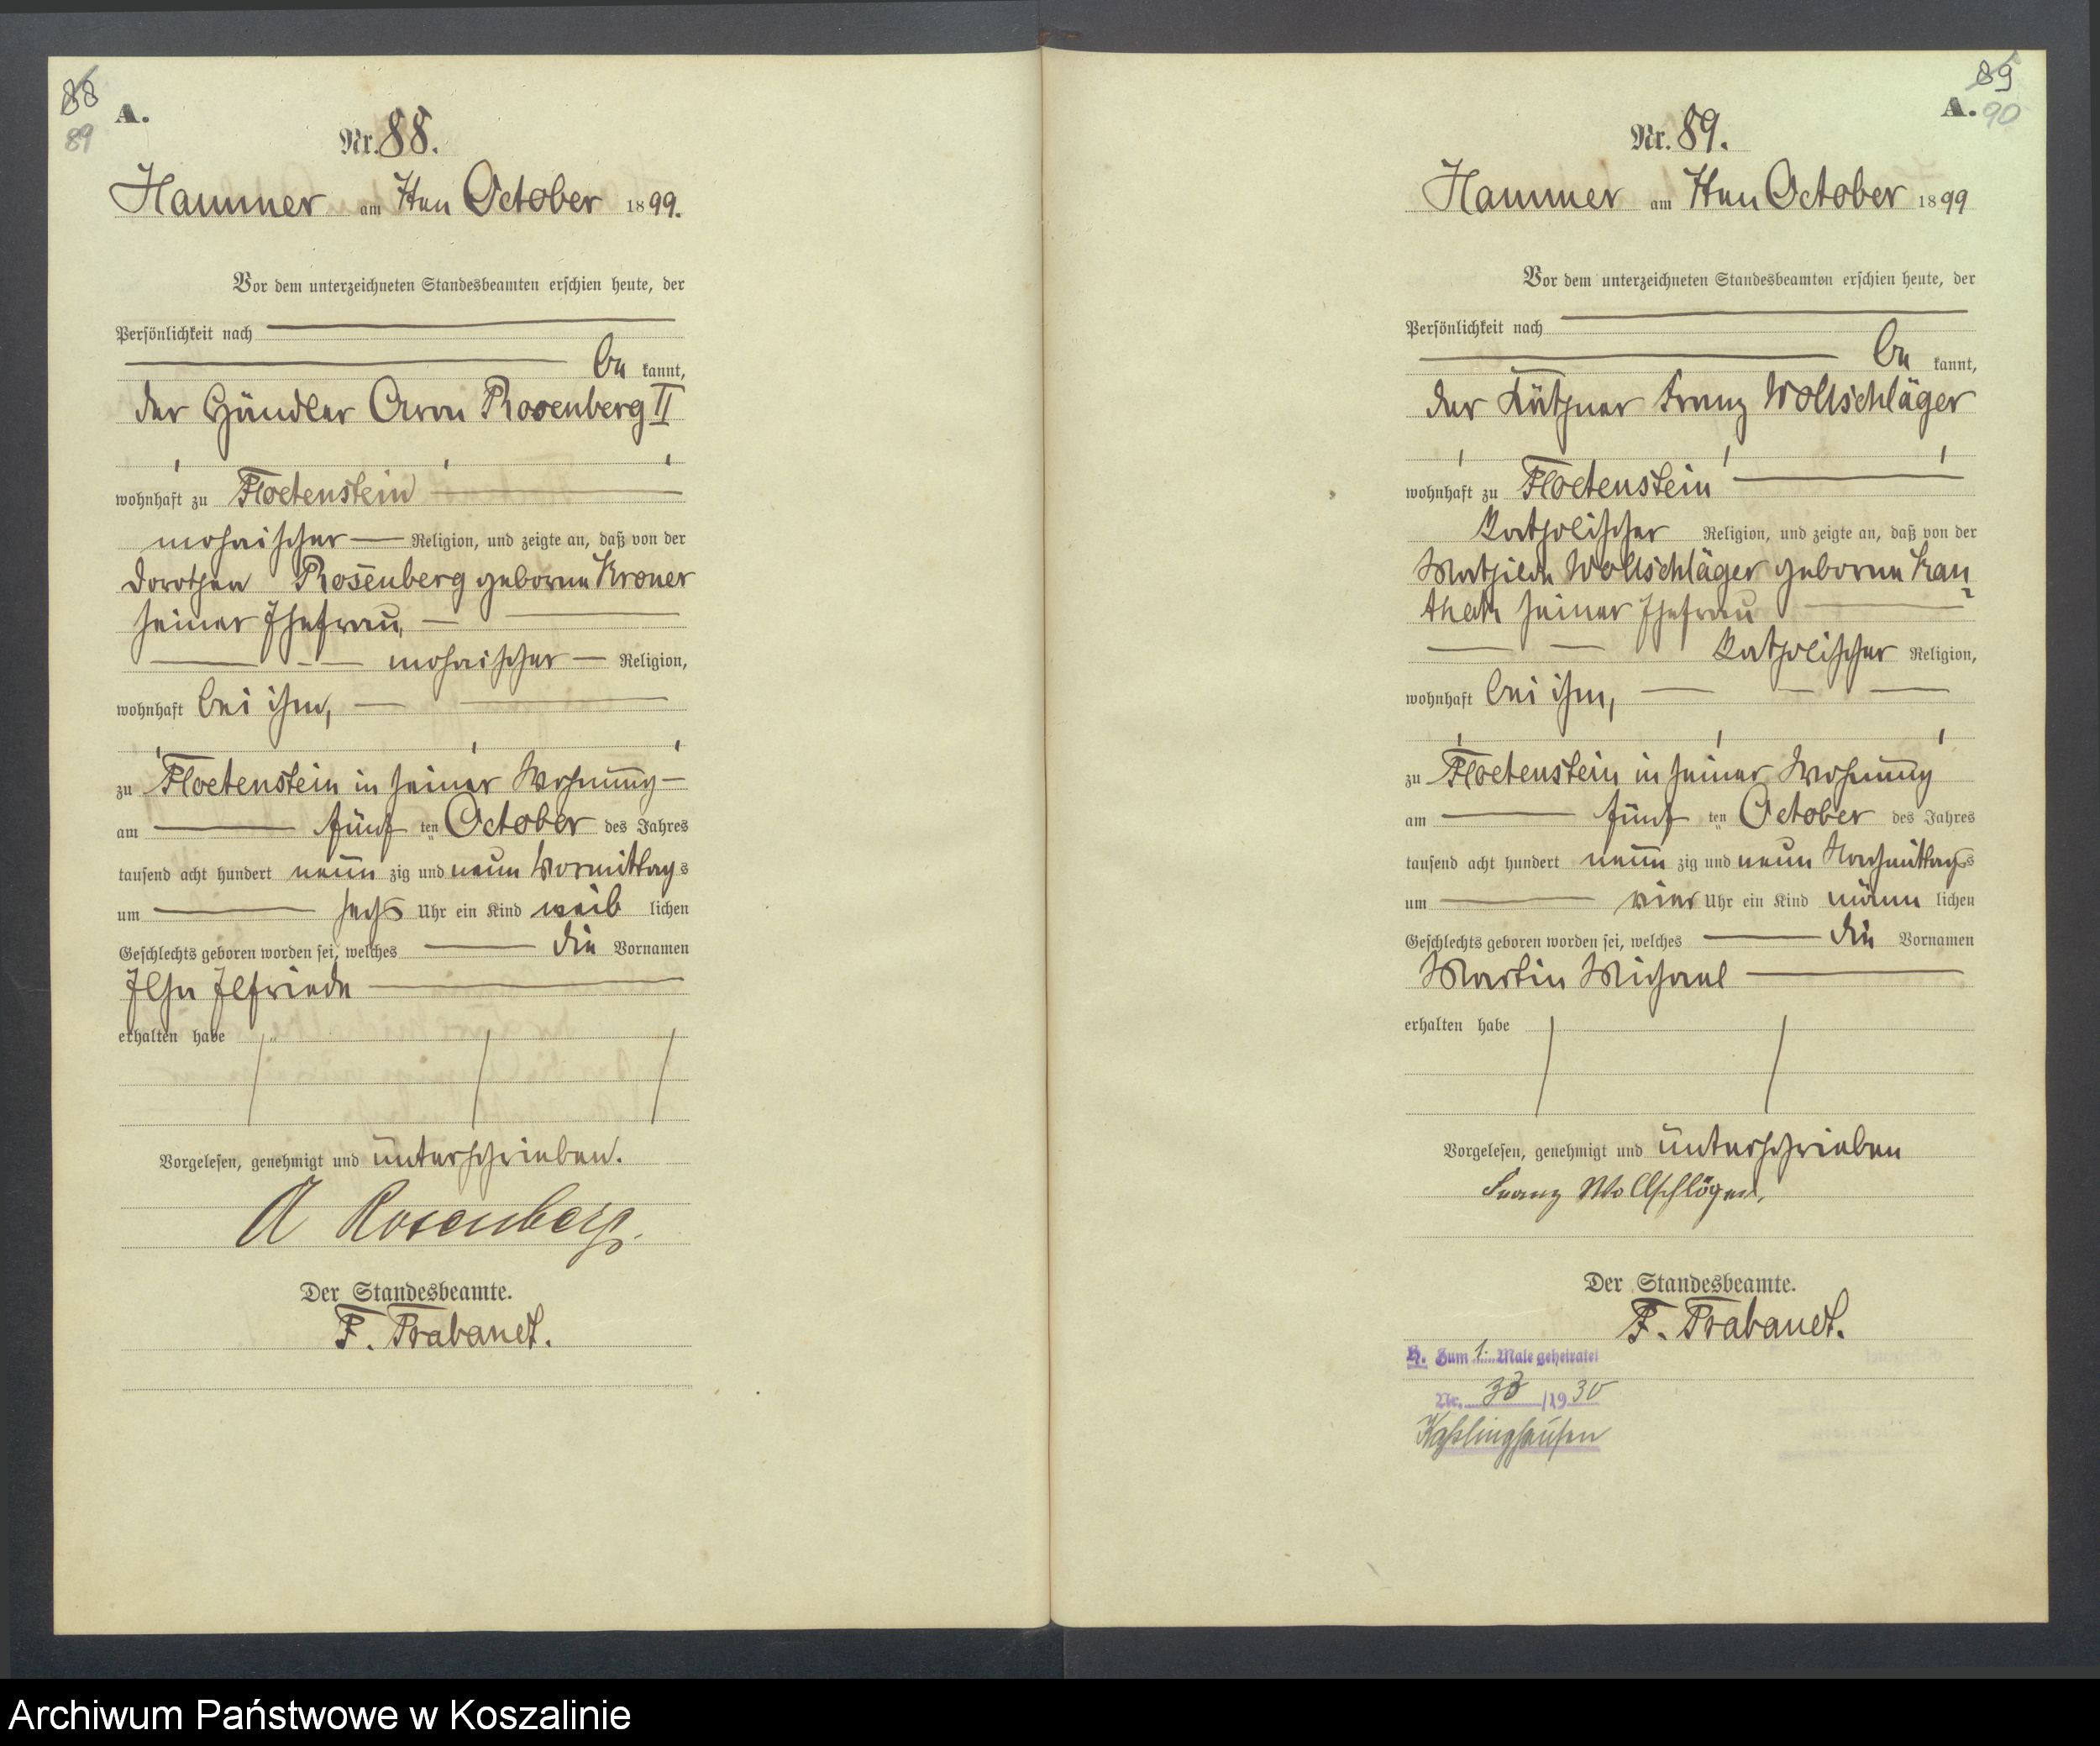 88
89
A.
Nr. 88.
Hammer am 7ten October 1899.
Vor dem unterzeichneten Standesbeamten erschien heute, der
Persönlichkeit nach
be kannt,
der Händler Aron Rosenberg II
wohnhaft zu Floetenstein
mosaischer Religion, und zeigte an, daß von der
Dorothea Rosenberg geborne Kroner
seiner Ehefrau,
mosaischer Religion,
wohnhaft bei ihm,
zu Floetenstein in seiner Wohnung
am fünf ten October des Jahres
tausend acht hundert neun zig und neun Vormittags
um sechs Uhr ein Kind weib lichen
Geschlechts geboren worden sei, welches die Vornamen
Ilse Elfriede
erhalten habe
Vorgelesen, genehmigt und unterschrieben.
A Rosenberg.
Der Standesbeamte.
F. Trabandt.
89
A. 90
Nr. 89.
Hammer am 7ten October 1899
Vor dem unterzeichneten Standesbeamten erschien heute, der
Persönlichkeit nach
be kannt,
der Käthner Franz Wollschläger
wohnhaft zu Floetenstein
katholischer Religion, und zeigte an, daß von der
Mathilde Wollschläger geborne Kan
seiner Ehefrau
katholischer Religion,
wohnhaft bei ihm,
zu Floetenstein in seiner Wohnung
am fünf ten October des Jahres
tausend acht hundert neun zig und neun Nachmittags
um vier Uhr ein Kind männ lichen
Geschlechts geboren worden sei, welches die Vornamen
Martin Michael
erhalten habe
Vorgelesen, genehmigt und unterschrieben
Franz Wollschläger,
Der Standesbeamte.
F. Trabandt.
H. Zum 1. Male geheiratet
Nr. 33 /1930
Archiwum Państwowe w Koszalinie